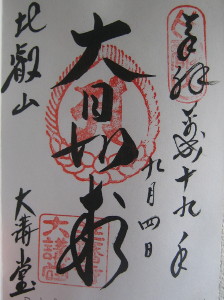 奉拝 平成十九年
九月四日
大日如来
比叡山
大講堂
大講堂